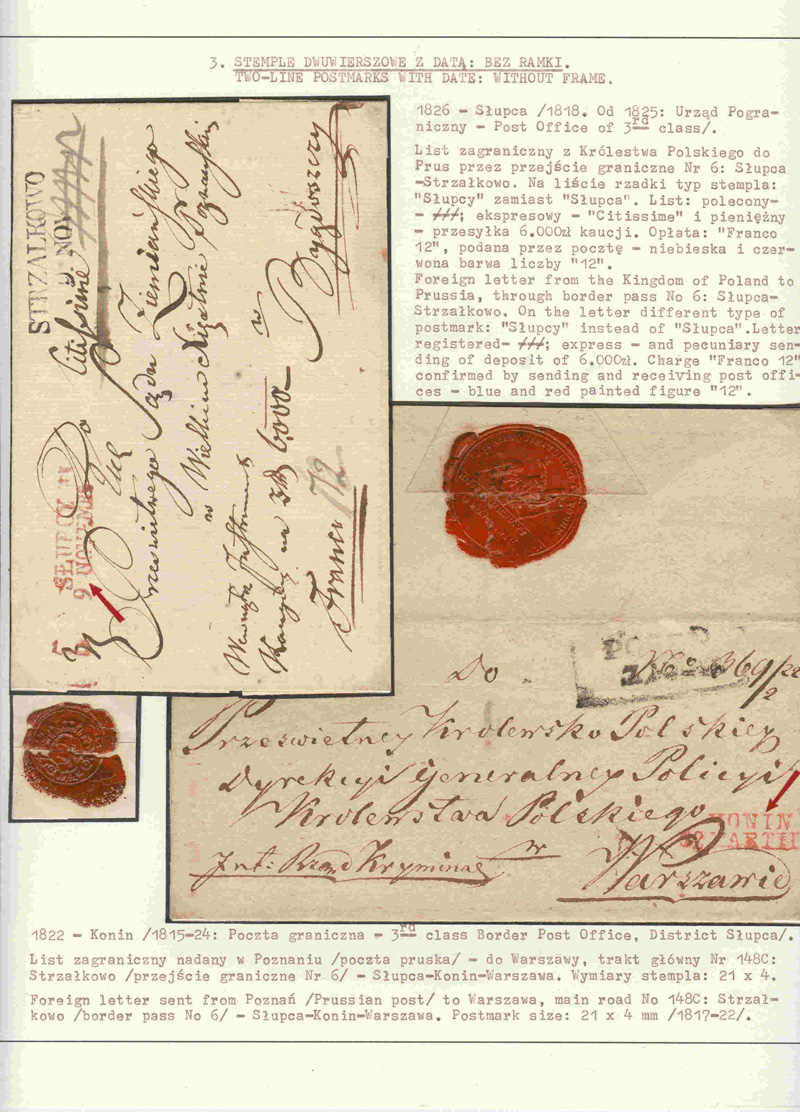 3. STEMPLE DWUWIERSZOWE Z DATĄ: BEZ RAMKI.
TWO-LINE POSTMARKS WITH DATE: WITHOUT FRAME.
1826 - Słupca /1818. Od 1825: Urząd Pogra-
niczny - Post Office of 3rd class/.
List zagraniczny z Królestwa Polskiego do
Prus przez przejście graniczne Nr 6: Słupca
-Strzałkowo. Na liście rzadki typ stempla:
"Słupcy" zamiast "Słupca". List: polecony-
- ; ekspresowy - "Citissime" i pieniężny
- przesyłka 6.000zł kaucji. Opłata: "Franco
12", podana przez pocztę - niebieska i czer-
wona barwa liczby "12".
Foreign letter from the Kingdom of Poland to
Prussia, through border pass No 6: Słupca-
Strzałkowo. On the letter different type of
postmark: "Słupcy" instead of "Słupca".Letter
registered- ; express - and pecuniary sen-
ding of deposit of 6.000zł. Charge "Franco 12"
confirmed by sending and receiving post offi-
ces - blue and red painted figure "12".
STRZALKOWO
9 NOV
Citissime
SŁUPCY
9 NOVEMB
Do
Prześwietnego Sądu Ziemiańskiego
w Wielkim Xięstwie Poznańskim
w
Bydgoszczy
6000
Franco 12
Do
No 369/22
Prześwietney Krolewsko Polskiey
Dyrekcyi Generalney Policyi
Krolewstwa Polskiego
KONIN
MARTII
w
Warszawie
Int: Rząd Kryminal
1822 - Konin /1815-24: Poczta graniczna - 3rd class Border Post Office, District Słupca/.
List zagraniczny nadany w Poznaniu /poczta pruska/ - do Warszawy, trakt główny Nr 148C:
Strzałkowo /przejście graniczne Nr 6/ - Słupca-Konin-Warszawa. Wymiary stempla: 21 x 4.
Foreign letter sent from Poznań /Prussian post/ to Warszawa, main road No 148C: Strzał-
kowo /border pass No 6/ - Słupca-Konin-Warszawa. Postmark size: 21 x 4 mm /1817-22/.